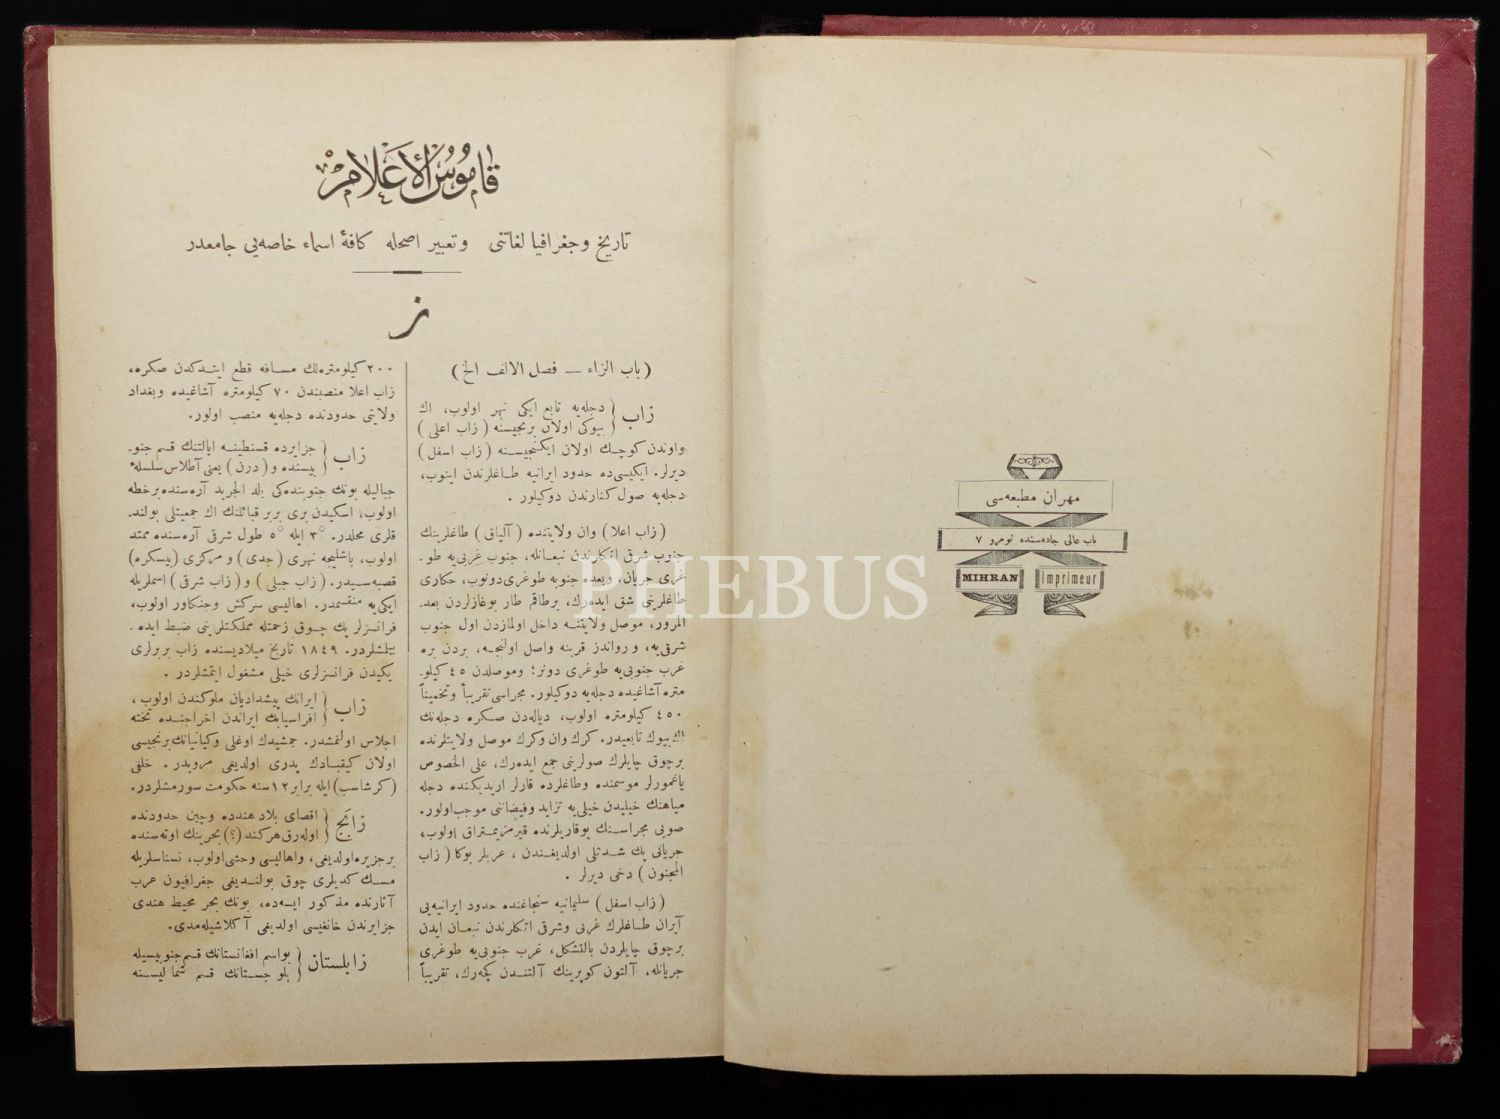 مهران مطبعه‌سی
باب عالی جاده‌سنده نومرو ٧
MIHRAN imprimeur
قَامُوسُ الأَعْلَامْ
تاریخ و جغرافیا لغاتنی وتعبیر اصحله کافهٔ اسماء خاصه‌یی جامعدر
ز
(باب الزاء — فصل الالف الخ)
زاب { دجله‌یه تابع ایکی نهر اولوب، اك
بیوکی اولان برنجیسنه (زاب اعلی)
واوندن کوچك اولان ایکنجیسنه (زاب اسفل)
دیرلر. ایکیسی‌ده حدود ایرانیه طاغلرندن اینوب،
دجله‌یه صول کنارندن دوکیلور.
(زاب اعلا) وان ولایتنده (آلیاق) طاغلرینك
جنوب شرقی اتکلرندن نبعانله، جنوب غربی‌یه طو-
غری جریان، وبعده جنوبه طوغری‌دونوب، حکاری
طاغلرینی شق ایده‌رك، برطاقم طار بوغازلردن بعد-
المرور، موصل ولایتنه داخل اولمازدن اول جنوب
شرقی‌یه، و رواندز قربنه واصل اولنجه، بردن بره
غرب جنوبی‌یه طوغری دونر؛ وموصلدن ٤٥ کیلو-
متره آشاغیده دجله‌یه دوکیلور. مجراسی تقریباً وتخمیناً
٤٥٠ کیلومتره اولوب، دیاله‌دن صکره دجله‌نك
اك بیوك تابعیدر. کرك وان وکرك موصل ولایتلرنده
برچوق چایلرك صولرینی جمع ایده‌رك، علی الخصوص
یاغمورلر موسمنده وطاغلرده قارلر اریدیکنده دجله
میاهنك خیلیدن خیلی‌یه تزاید وفیضاننی موجب‌اولور.
صویی مجراسنك یوقاریلرنده قیرمزیمتراق اولوب،
جریانی پك شدتلی اولدیغندن، عربلر بوکا (زاب
المجنون) دخی دیرلر.
(زاب اسفل) سلیمانیه سنجاغنده حدود ایرانیه‌یی
آیران طاغلرك غربی وشرقی اتکلرندن نبعان ایدن
برچوق چایلردن بالتشکل، غرب جنوبی‌یه طوغری
جریانله، آلتون کوپرینك آلتندن کچه‌رك، تقریباً
٢٠٠ کیلومتره‌لك مسافه قطع ایتدکدن صکره،
زاب اعلا منصبندن ٧٠ کیلومتره آشاغیده وبغداد
ولایتی حدودنده دجله‌یه منصب اولور.
زاب { جزایرده قسنطینه ایالتنك قسم جنو-
بیسنده و(درن) یعنی آطلاس سلسلهٔ
جبالیله بونك جنوبنده‌کی بلد الجرید آره‌سنده برخطه
اولوب، اسکیدن بری بربر قبائلنك اك جمعیتلی بولند-
قلری محلدر. ٣° ایله ٥° طول شرقی آره‌سنده ممتد
اولوب، باشلیجه نهری (جدی) و مرکزی (بیسکره)
قصبه‌سیدر. (زاب جبلی) و(زاب شرقی) اسملریله
ایکی‌یه منقسمدر. اهالیسی سرکش وجنکاور اولوب،
فرانسزلر پك چوق زحمتله مملکتلرینی ضبط ایده-
بیلمشلردر. ١٨٤٩ تاریخ میلادیسنده زاب بربرلری
یکیدن فرانسزلری خیلی مشغول ایتمشلردر.
زاب { ایرانك پیشدادیان ملوکندن اولوب،
افراسیابك ایراندن اخراجنده تخته
اجلاس اولنمشدر. جمشیدك اوغلی وکیانیانك برنجیسی
اولان کیقبادك پدری اولدیغی مرویدر. خلفی
(کرشاسب) ایله برابر ١٢ سنه حکومت سورمشلردر.
زابج { اقصای بلاد هندده وچین حدودنده
اوله‌رق هرکند (؟) بحرینك اوته‌سنده
برجزیره‌اولدیغی، واهالیسی وحشی‌اولوب، نسناسلریله
مسك کدیلری چوق بولندیغی جغرافیون عرب
آثارنده مذکور ایسه‌ده، بونك بحر محیط هندی
جزایرندن خانغیسی اولدیغی آکلاشیله‌مدی.
زابلستان { بواسم افغانستانك قسم جنوبیسیله
بلوجستانك قسم شمالیسنه